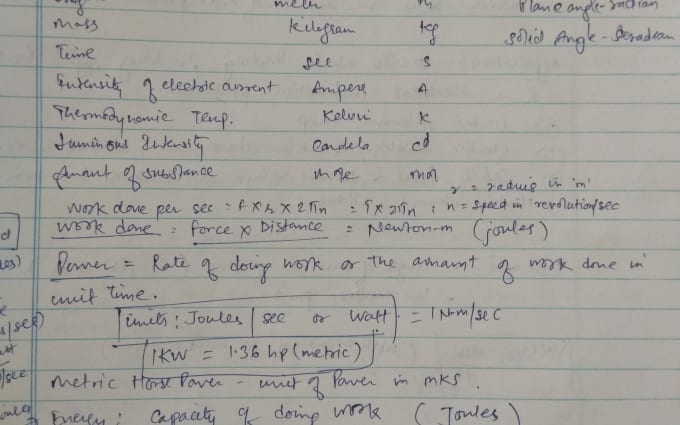 meter m Plane angle-radian
Mass Kilogram kg Solid Angle - Steradian
Time sec s
Intensity of electric current Ampere A
Thermodynamic Temp. Kelvin K
Luminous Intensity Candela cd
Amount of substance Mole mol
r = radius in 'm'
work done per sec = f x r x 2πn = T x 2πn ; n = speed in revolution/sec
work done = force x Distance = Newton-m (joules)
Power = Rate of doing work or the amount of work done in
unit time.
Units: Joules / sec or Watt = 1 N-m/sec
1KW = 1.36 hp (metric)
Metric Horse Power - unit of Power in MKS.
Energy: Capacity of doing work (Joules)